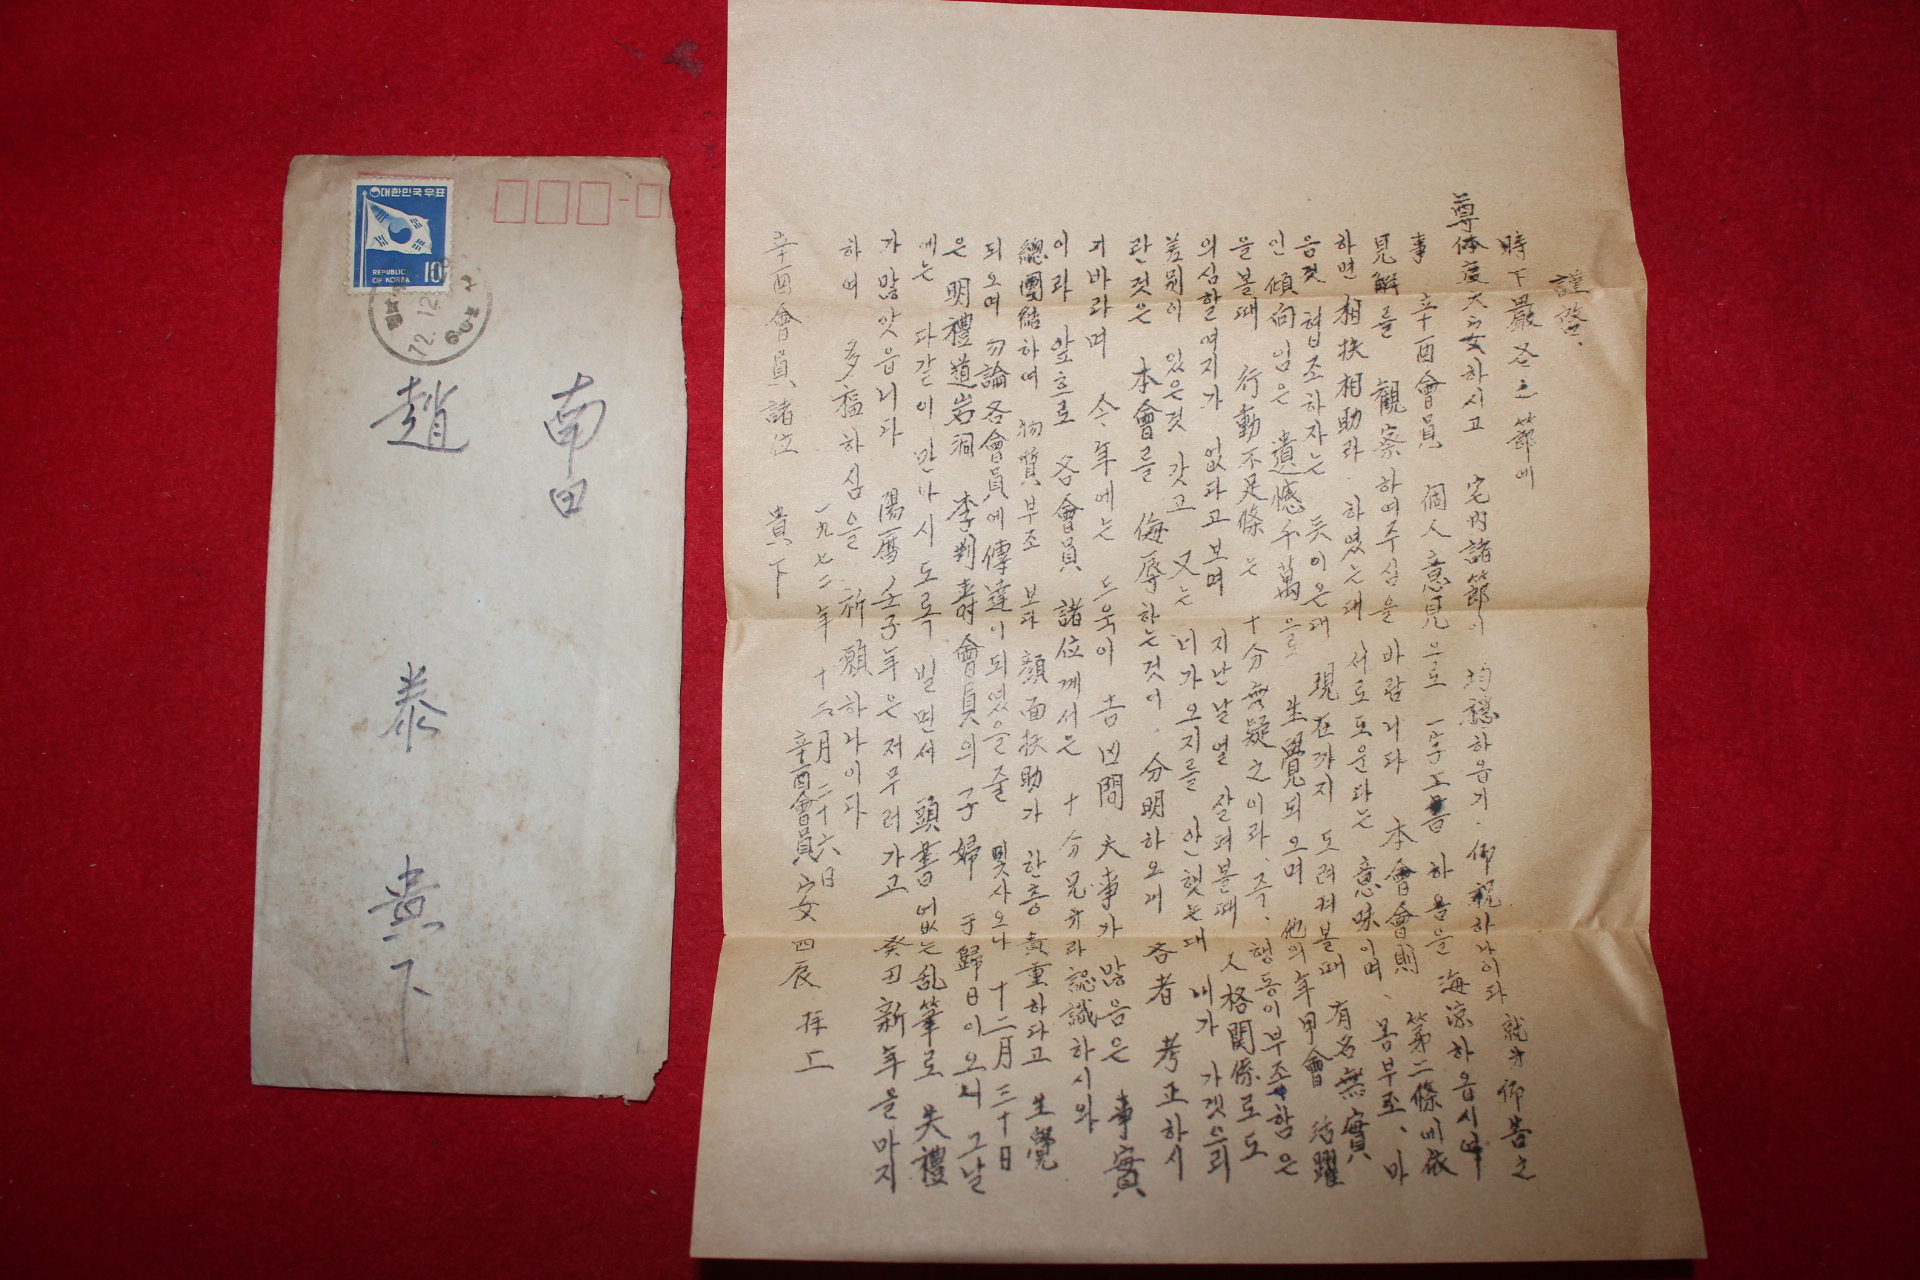 대한민국우표
REPUBLIC
OF KOREA
10
72. 12.
南田
趙 泰 貴下
謹啓.
時下嚴冬之節에
尊体度大安하시고 宅內諸節이 均穩하옵기. 仰祝하나이다 就方仰告之
事 辛酉會員 個人意見으로 一字上書 하옴을 海涼하옵시며
見解를 観察하여주심을 바람니다 本會會則 第二條에依
하면 相扶相助라. 하였는대 서로도운다는 意味이며. 몸부조. 마
음젓 협조하자는 듯이온대 現在까지 도려켜볼때 有名無實
인 傾向임은 遺憾千萬으로 生覺되오며 他의年甲會 活躍
을볼때 行動不足條는 十分無疑之이라. 즉. 행동이부족함은
의심할여지가 없다고보며 지난날열 살펴볼때 人格関係로도
差別이 있은것 갓고 又는 너가오지를 안헛는대 내가 가겟으리
란것은 本會를 侮辱하는것이. 分明하오니 各者 考正하시
기바라며 今年에는 드욱이 吉凶間 大事가 많음은 事實
이라 앞흐로 各會員 諸位게서는 十分兄才라認識하시와
總團結하여 物質부조 보다 顔面扶助가 한층 貴重하다고 生覺
되오며 勿論各會員에傳達이되였을줄 밋사오나 十二月三十日
은 明禮道岩洞 李判壽會員의 子婦 于歸日이오니 그날
에는 다같이 만나시도록 빌면서 頭書없는乱筆로 失禮
가많앗읍니다 陽曆 壬子年은저무러가고 癸丑新年을마지
하여 多福하심을 祈願하나이다
一九七二年 十二月 二十六日
辛酉會員 安四辰 拜上
辛酉會員諸位 貴下